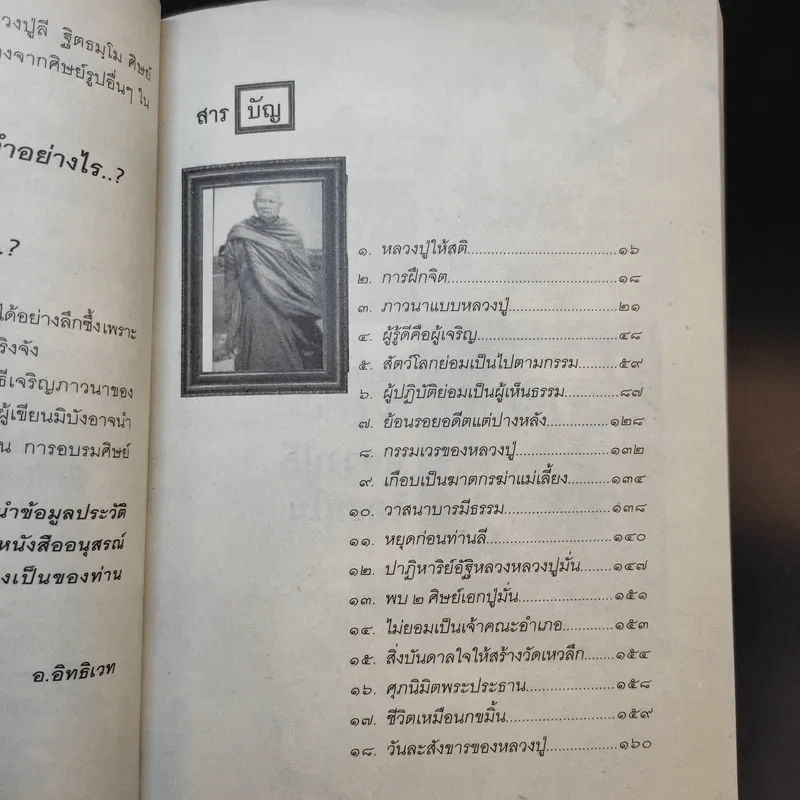 วงปู่ลี ฐิตธมฺโม ศิษย์
งจากศิษย์รูปอื่นๆ ใน
ทำอย่างไร..?
..?
ได้อย่างลึกซึ้งเพราะ
ริงจัง
ธีเจริญภาวนาของ
ผู้เขียนมิบังอาจนำ
น การอบรมศิษย์
นำข้อมูลประวัติ
หนังสืออนุสรณ์
งเป็นของท่าน
อ.อิทธิเวท
สารบัญ
๑. หลวงปู่ให้สติ.......................................๑๖
๒. การฝึกจิต............................................๑๘
๓. ภาวนาแบบหลวงปู่............................๒๑
๔. ผู้รู้ดีคือผู้เจริญ....................................๔๘
๕. สัตว์โลกย่อมเป็นไปตามกรรม.........๕๙
๖. ผู้ปฏิบัติย่อมเป็นผู้เห็นธรรม..............๘๗
๗. ย้อนรอยอดีตแต่ปางหลัง................๑๒๘
๘. กรรมเวรของหลวงปู่.........................๑๓๒
๙. เกือบเป็นฆาตกรฆ่าแม่เลี้ยง............๑๓๔
๑๐. วาสนาบารมีธรรม............................๑๓๘
๑๑. หยุดก่อนท่านลี.................................๑๔๐
๑๒. ปาฏิหาริย์อัฐิหลวงหลวงปู่มั่น.........๑๔๗
๑๓. พบ ๒ ศิษย์เอกปู่มั่น.........................๑๕๑
๑๔. ไม่ยอมเป็นเจ้าคณะอำเภอ..............๑๕๓
๑๕. สิ่งบันดาลใจให้สร้างวัดเหวลึก........๑๕๔
๑๖. ศุภนิมิตพระประธาน.......................๑๕๘
๑๗. ชีวิตเหมือนกขมิ้น............................๑๕๙
๑๘. วันละสังขารของหลวงปู่..................๑๖๐